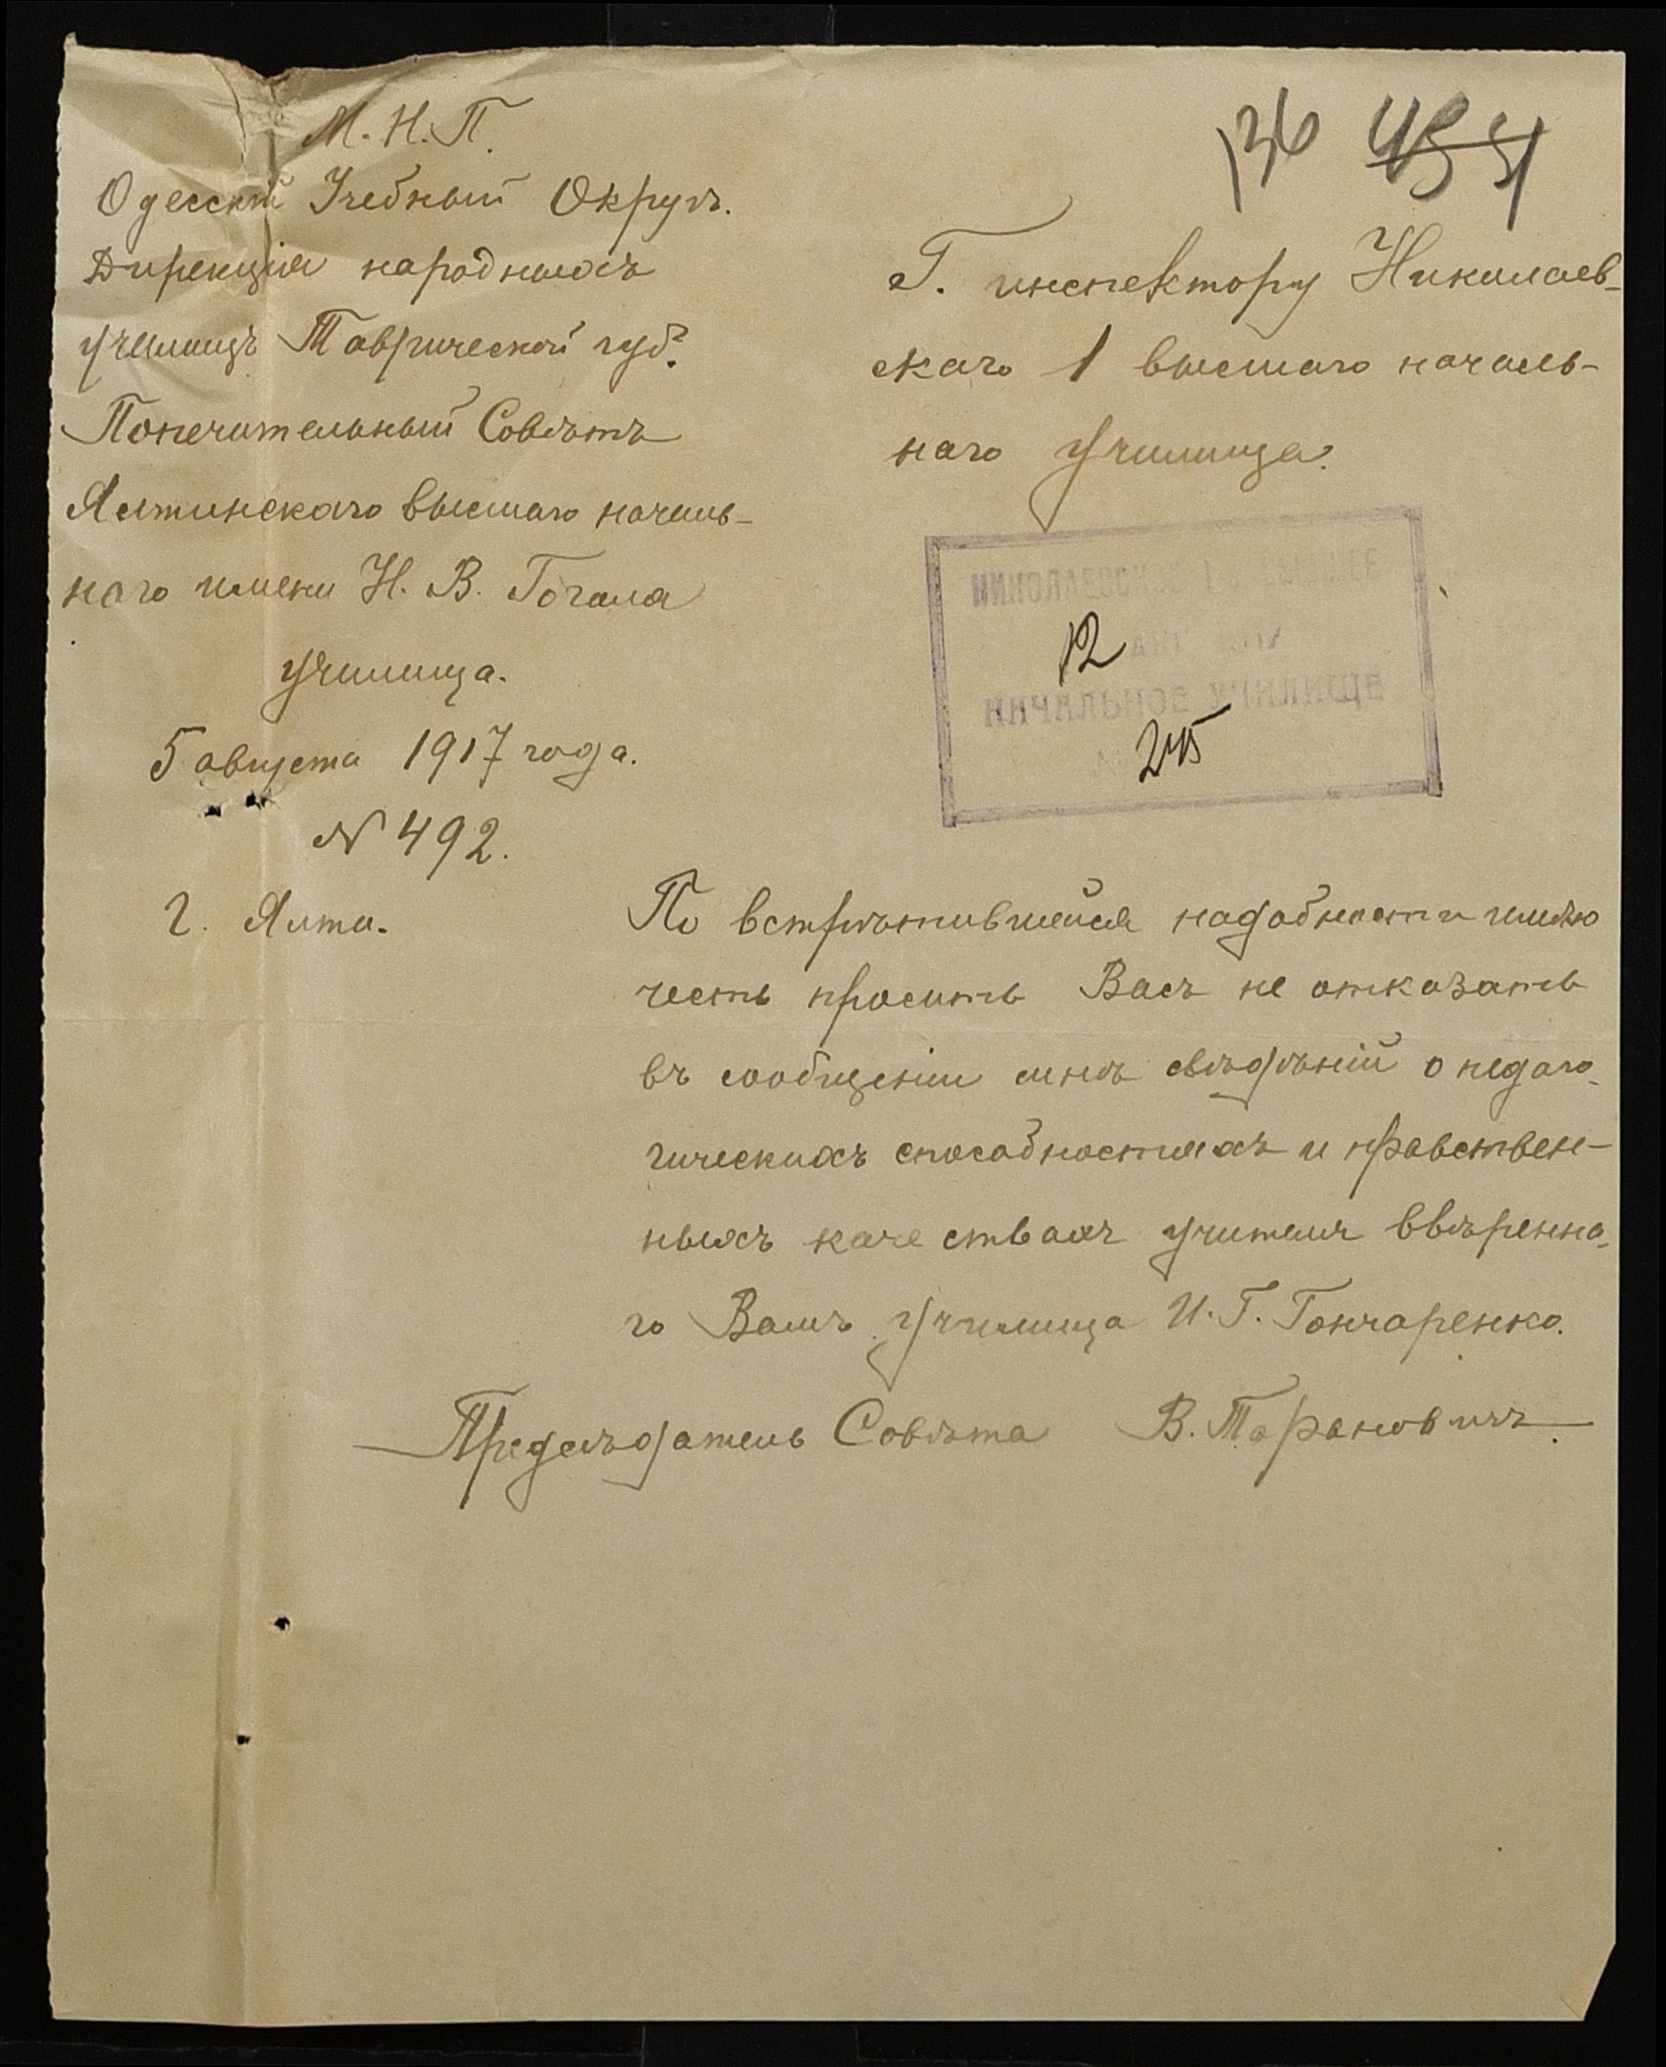 М. Н. П.
Одесскій Учебный Округъ.
Дирекція народныхъ
училищъ Таврической губ.
Попечительный Совѣтъ
Ялтинскаго высшаго началь-
наго имени Н. В. Гоголя
училища.
5 августа 1917 года.
№ 492.
г. Ялта.
136
Г. инспектору Николаев-
скаго 1 высшаго началь-
наго училища.
НИКОЛАЕВСКОЕ 1-е ВЫСШЕЕ
12
НАЧАЛЬНОЕ УЧИЛИЩЕ
245
По встрѣтившейся надобности имѣю
честь просить Васъ не отказать
въ сообщеніи мнѣ свѣдѣній о педаго-
гическихъ способностяхъ и нравствен-
ныхъ качествахъ учителя ввѣренна-
го Вамъ училища И. Г. Гончаренко.
Предсѣдатель Совѣта В. Тарановичъ.